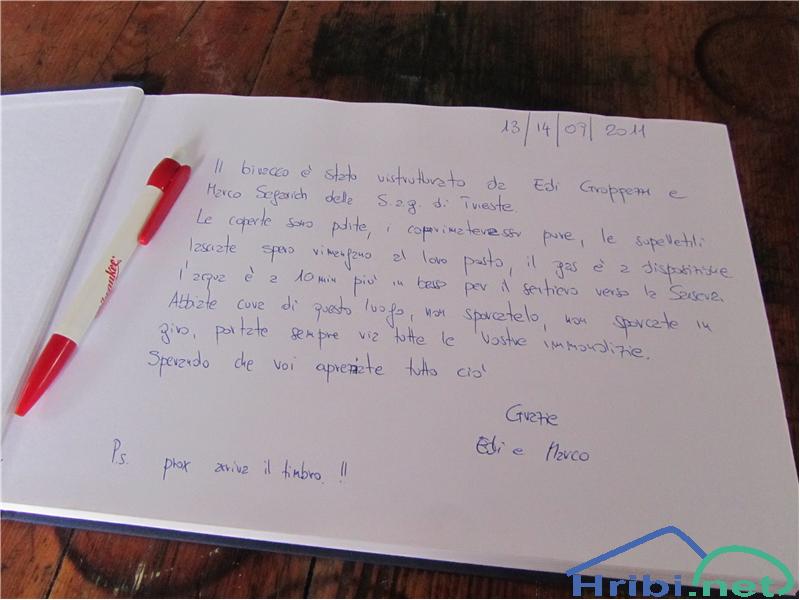 13/14/07/2011
Il bivacco è stato ristrutturato da Edi Groppazzi e
Marco Segarich della S.a.g. di Trieste.
Le coperte sono pulite, i coprimaterassi pure, le supellettili
lasciate spero rimangano al loro posto, il gas è a disposizione
l'acqua è a 10 min più in basso per il sentiero verso la
Abbiate cura di questo luogo, non sporcatelo, non sporcate in
giro, portate sempre via tutte le vostre immondizie.
Sperando che voi apprezziate tutto ciò
Grazie
Edi e Marco
P.s. prox arriva il timbro. !!
Hribi.net